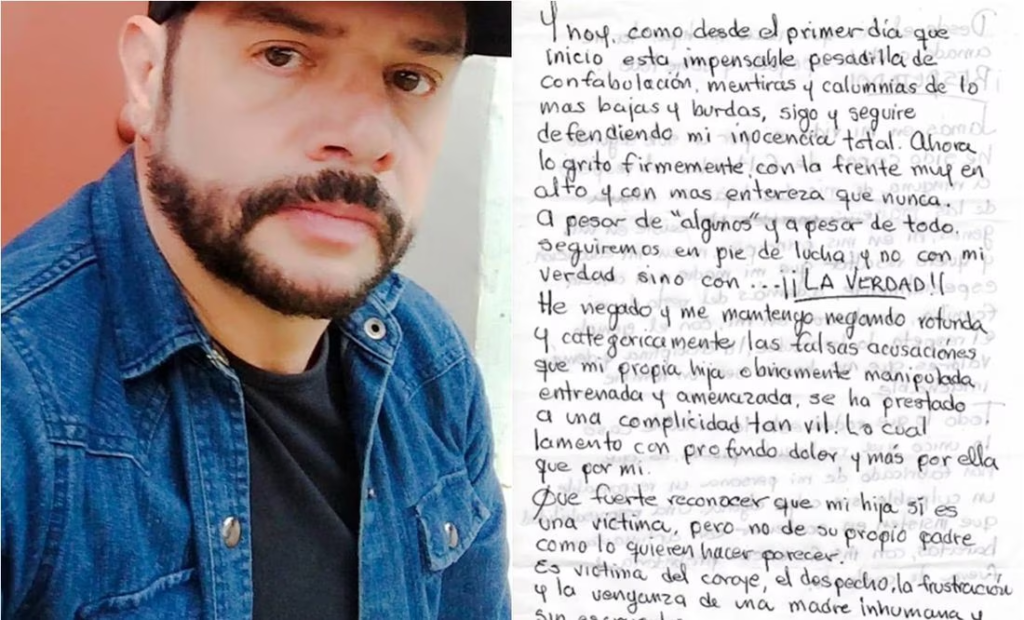 Y hoy, como desde el primer día que
inicio esta impensable pesadilla de
confabulación, mentiras y calumnias de lo
mas bajas y burdas, sigo y seguire
defendiendo mi inocencia total. Ahora
lo grito firmemente, con la frente muy en
alto y con mas entereza que nunca.
A pesar de "algunos" y a pesar de todo.
seguiremos en pie de lucha y no con mi
verdad sino con ...¡¡LA VERDAD!!
He negado y me mantengo negando rotunda
y categóricamente las falsas acusaciónes
que mi propia hija obviamente manipulada
entrenada y amenazada, se ha prestado
a una complicidad tan vil. Lo cual
lamento con profundo dolor y más por ella
que por mi.
Que fuerte reconocer que mi hija si es
una víctima, pero no de su propio padre
como lo quieren hacer parecer.
Es victima del coraje, el despecho, la frustración
y la venganza de una madre inhumana y
sin